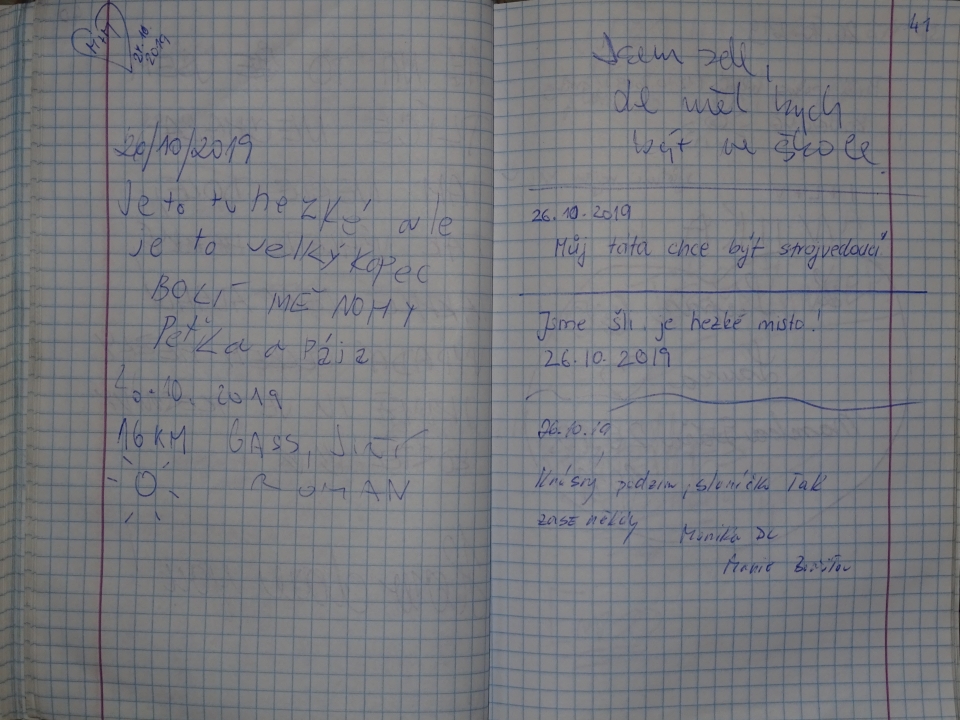 M+M
21.10.
2019
20/10/2019
Je to tu hezké ale
je to velký kopec
BOLÍ MĚ NOHY
Peťka a Pája
20.10. 2019
16 KM GASS, JIŘÍ
ROMAN
41
Jsem zde,
ale měl bych
být ve škole.
26.10.2019
Můj táta chce být strojvedoucí
Jsme šli, je hezké místo!
26.10.2019
26.10.19
Krásný podzim, sluníčko tak
zase někdy
Monika